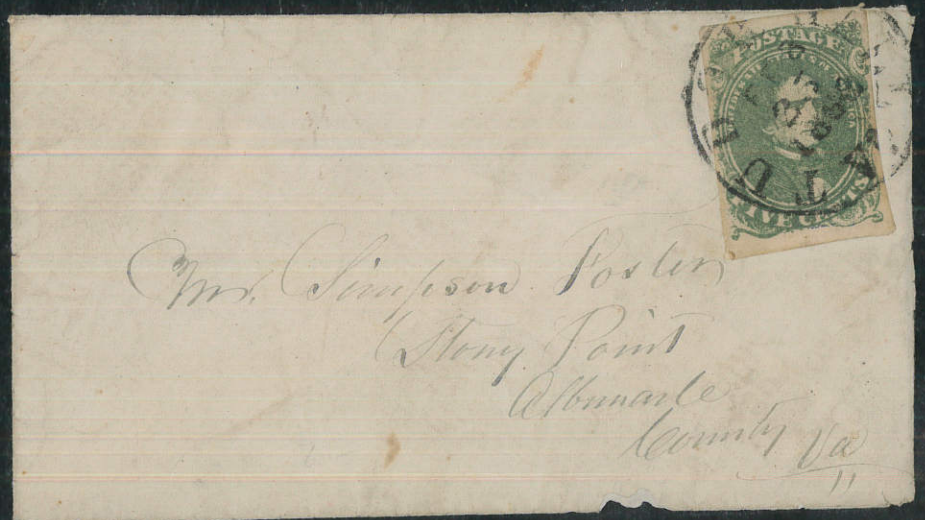 POSTAGE
FIVE CENTS
FEB
Mr. Simpson Foster
Stony Point
Albemarle
County Va